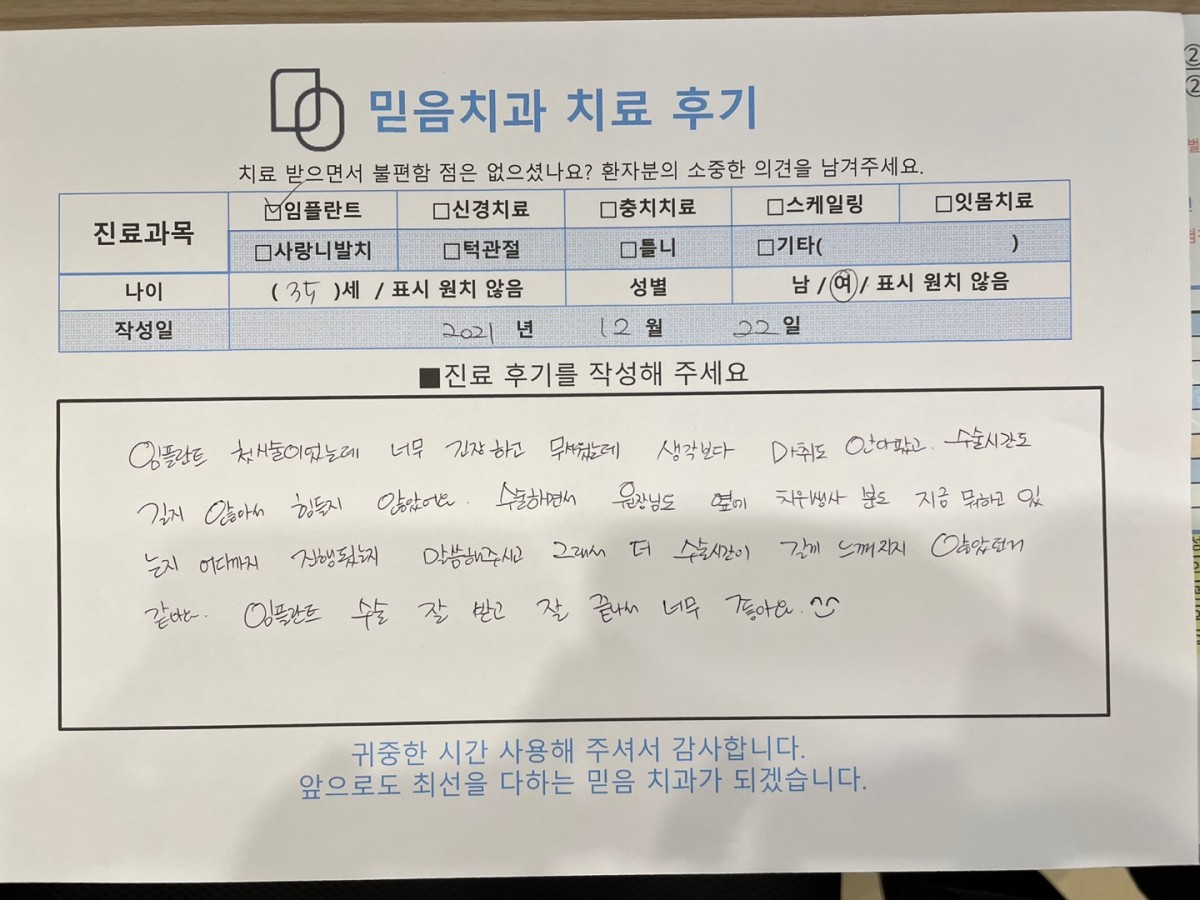 믿음치과 치료 후기
치료 받으면서 불편함 점은 없으셨나요? 환자분의 소중한 의견을 남겨주세요.
진료과목 ☑임플란트 □신경치료 □충치치료 □스케일링 □잇몸치료
□사랑니발치 □턱관절 □틀니 □기타( )
나이 ( 35 )세 / 표시 원치 않음 성별 남 / 여 / 표시 원치 않음
작성일 2021 년 12 월 22 일
■진료 후기를 작성해 주세요
임플란트 첫수술이었는데 너무 긴장하고 무서웠는데 생각보다 마취도 안아팠고. 수술시간도
길지 않아서 힘들지 않았어요. 수술하면서 원장님도 옆에 치위생사 분도 지금 뭐하고 있
는지 어디까지 진행됬는지 말씀해주시고 그래서 더 수술시간이 길게 느껴지지 않았던거
같아요. 임플란트 수술 잘 받고 잘 끝나서 너무 좋아요. ^^
귀중한 시간 사용해 주셔서 감사합니다.
앞으로도 최선을 다하는 믿음 치과가 되겠습니다.
②
②